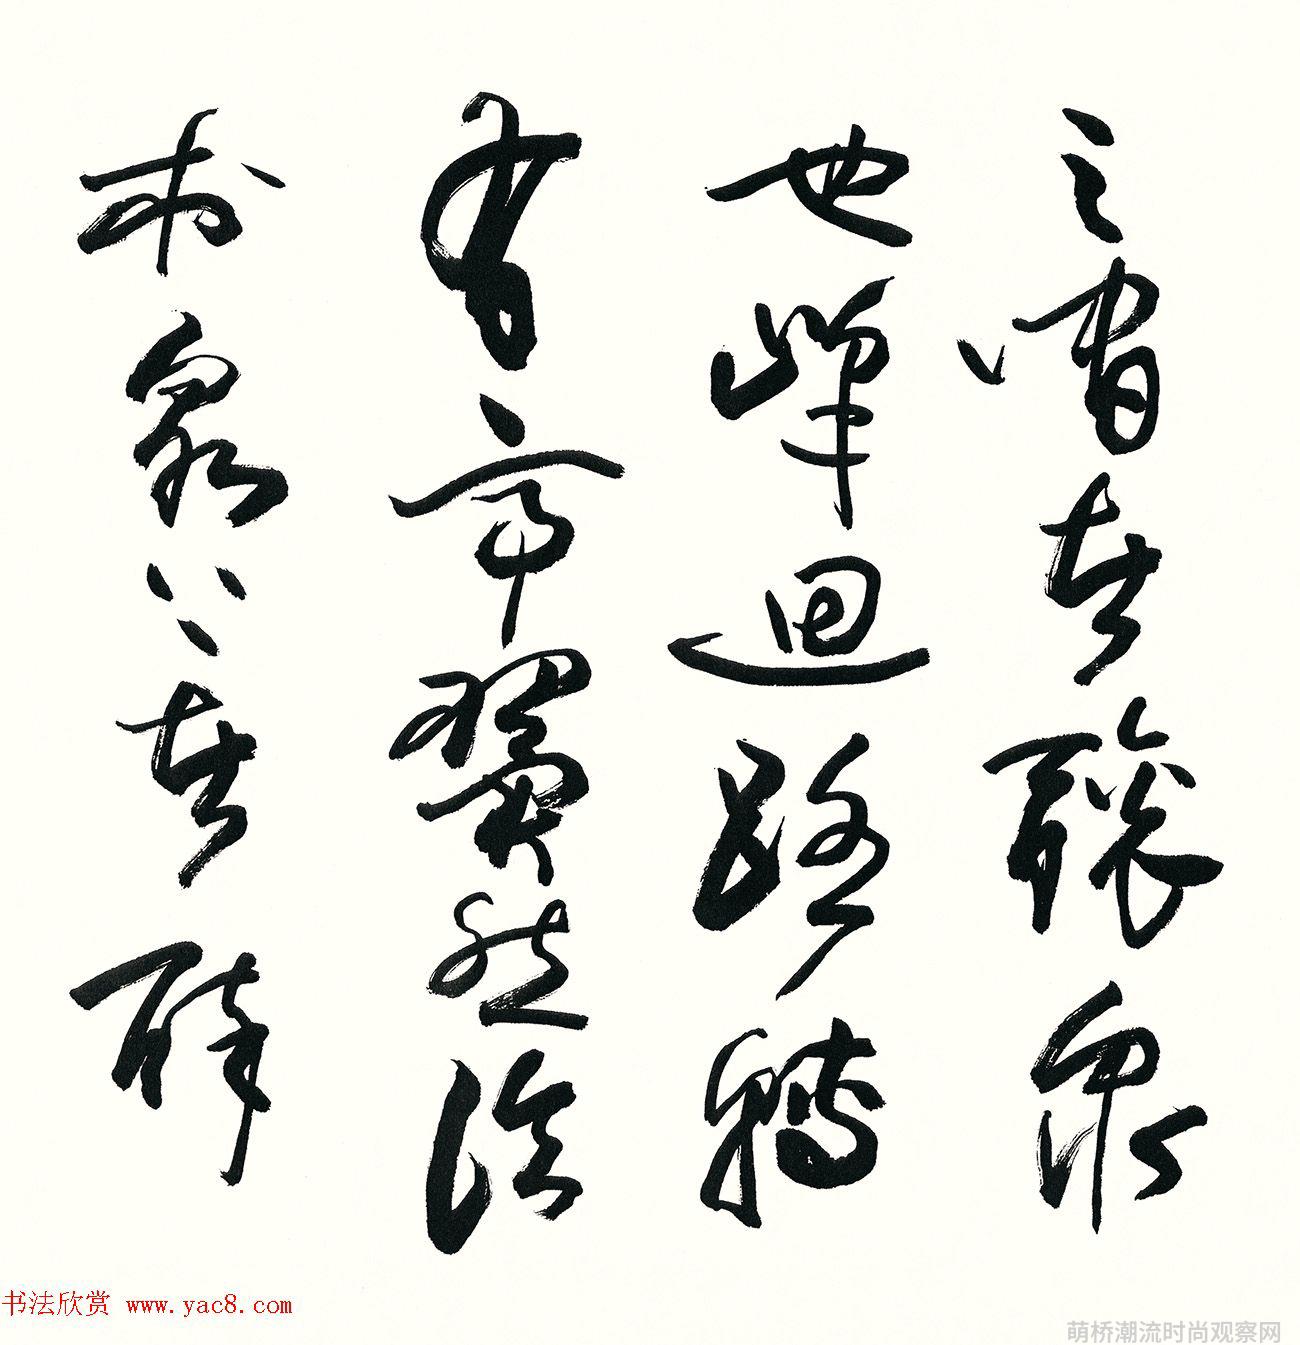 之間者釀泉
也峰迴路轉
有亭翼然臨
於泉上者醉
书法欣赏 www.yac8.com
萌桥潮流时尚观察网